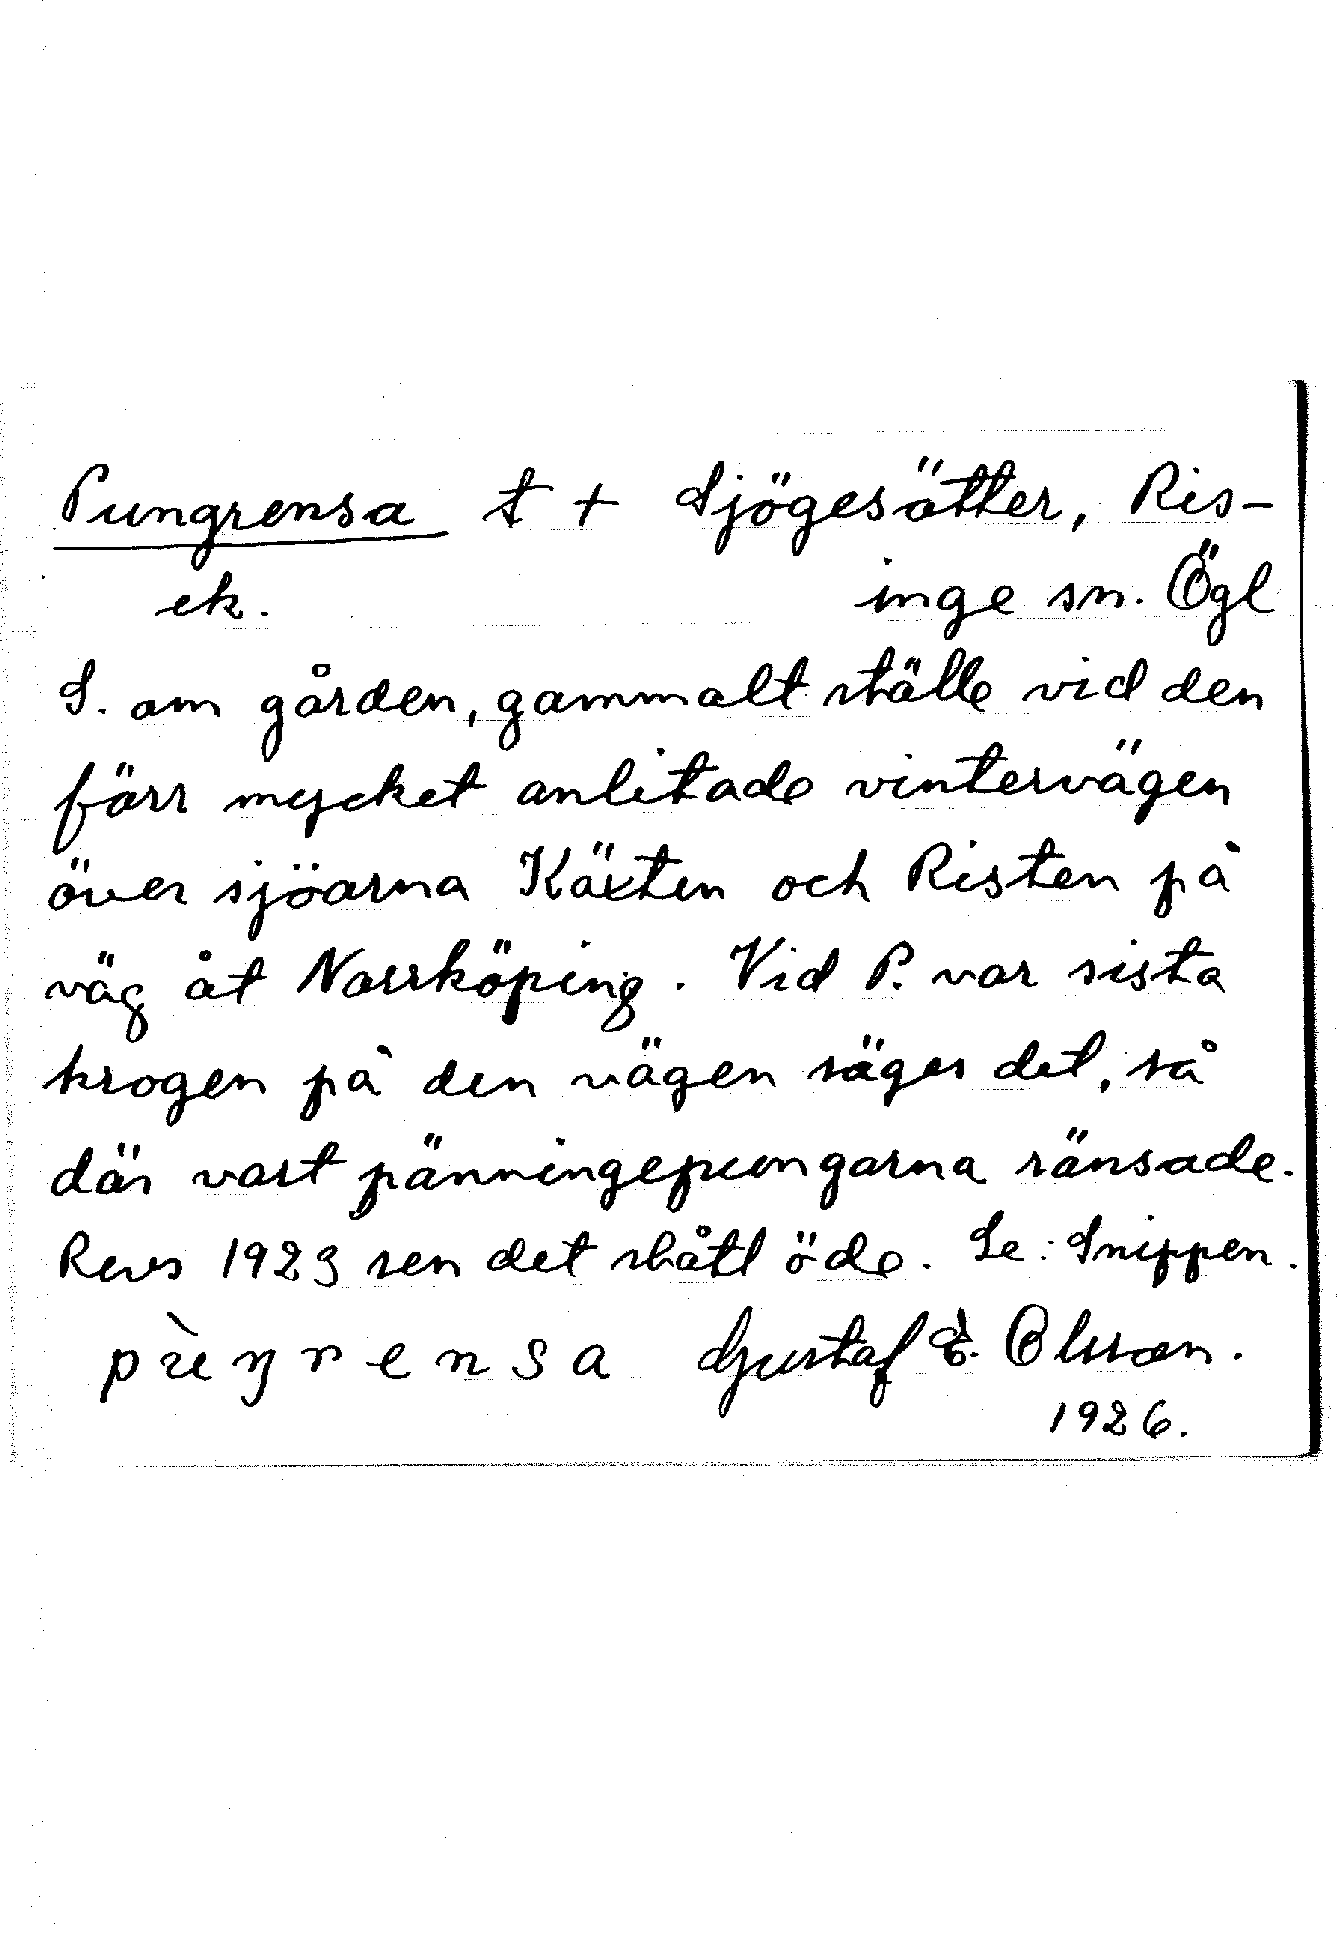 Pungrensa t + Sjögesätter, Ris-
ek. inge sn. Ögl
S. om gården, gammalt ställe vid den
förr mycket anlitade vintervägen
över sjöarna Käxten och Risten på
väg åt Norrköping. Vid P. var sista
krogen på den vägen säges det, så
där vart pänningepungarna ränsade.
Revs 1923 sen det stått öde. Se: Snippen.
pùŋrensa Gustaf E. Olsson.
1926.